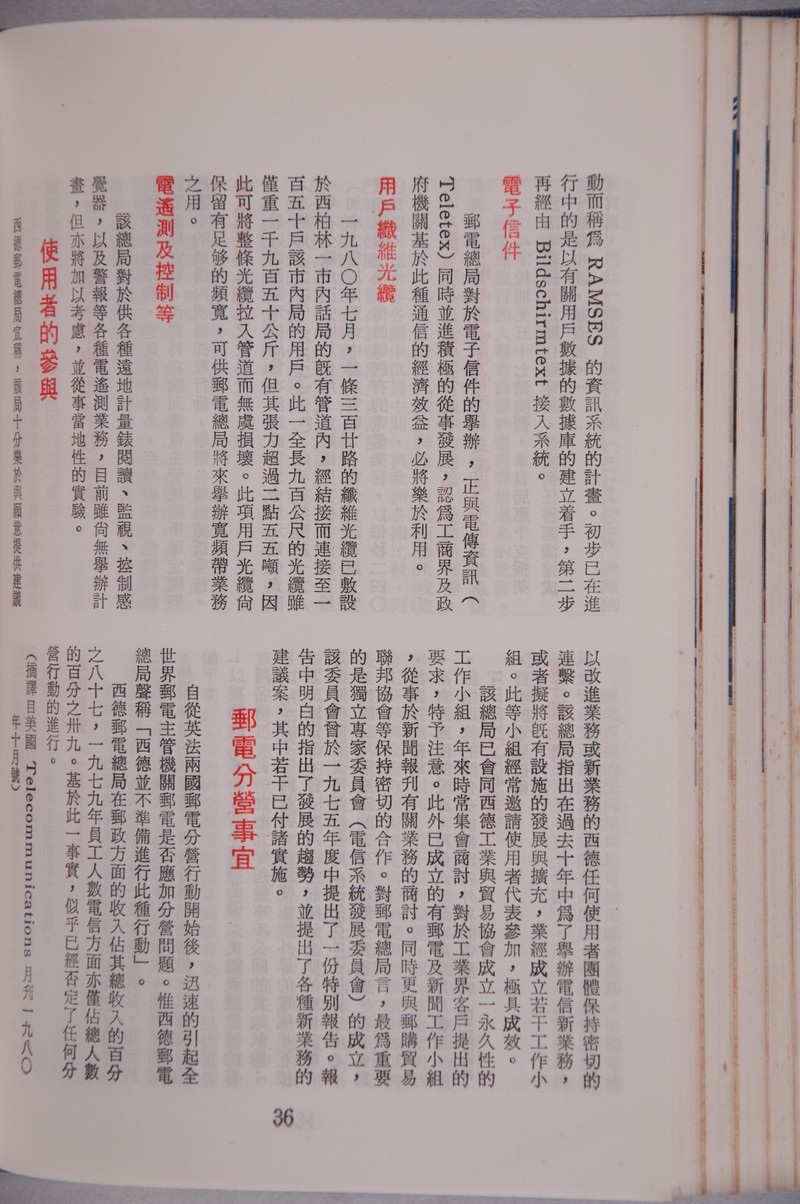 動而稱爲 RAMSES 的資訊系統的計畫。初步已在進
行中的是以有關用戶數據的數據庫的建立着手，第二步
再經由 Bildschirmtext 接入系統。
電子信件
郵電總局對於電子信件的舉辦，正與電傳資訊（
Teletex）同時並進積極的從事發展，認爲工商界及政
府機關基於此種通信的經濟效益，必將樂於利用。
用戶纖維光纜
一九八〇年七月，一條三百廿路的纖維光纜已敷設
於西柏林一市內話局的旣有管道內，經結接而連接至一
百五十戶該市內局的用戶。此一全長九百公尺的光纜雖
僅重一千九百五十公斤，但其張力超過二點五五噸，因
此可將整條光纜拉入管道而無虞損壞。此項用戶光纜尙
保留有足够的頻寬，可供郵電總局將來擧辦寬頻帶業務
之用。
電遙測及控制等
該總局對於供各種遠地計量錶閱讀、監視、控制感
覺器，以及警報等各種電遙測業務，目前雖尙無舉辦計
畫，但亦將加以考慮，並從事當地性的實驗。
使用者的參與
西德郵電總局宣稱，該局十分樂於與願意提供建議
以改進業務或新業務的西德任何使用者團體保持密切的
連繫。該總局指出在過去十年中爲了擧辦電信新業務，
或者擬將旣有設施的發展與擴充，業經成立若干工作小
組。此等小組經常邀請使用者代表參加，極具成效。
該總局已會同西德工業與貿易協會成立一永久性的
工作小組，年來時常集會商討，對於工業界客戶提出的
要求，特予注意。此外已成立的有郵電及新聞工作小組
，從事於新聞報刊有關業務的商討。同時更與郵購貿易
聯邦協會等保持密切的合作。對郵電總局言，最爲重要
的是獨立專家委員會（電信系統發展委員會）的成立，
該委員會曾於一九七五年度中提出了一份特別報告。報
告中明白的指出了發展的趨勢，並提出了各種新業務的
建議案，其中若干已付諸實施。
郵電分營事宜
自從英法兩國郵電分營行動開始後，迅速的引起全
世界郵電主管機關郵電是否應加分營問題。惟西德郵電
總局聲稱「西德並不準備進行此種行動」。
西德郵電總局在郵政方面的收入佔其總收入的百分
之八十七，一九七九年員工人數電信方面亦僅佔總人數
的百分之卅九。基於此一事實，似乎已經否定了任何分
營行動的進行。
（摘譯自美國 Telecommunications 月刊一九八〇
年十月號）
36